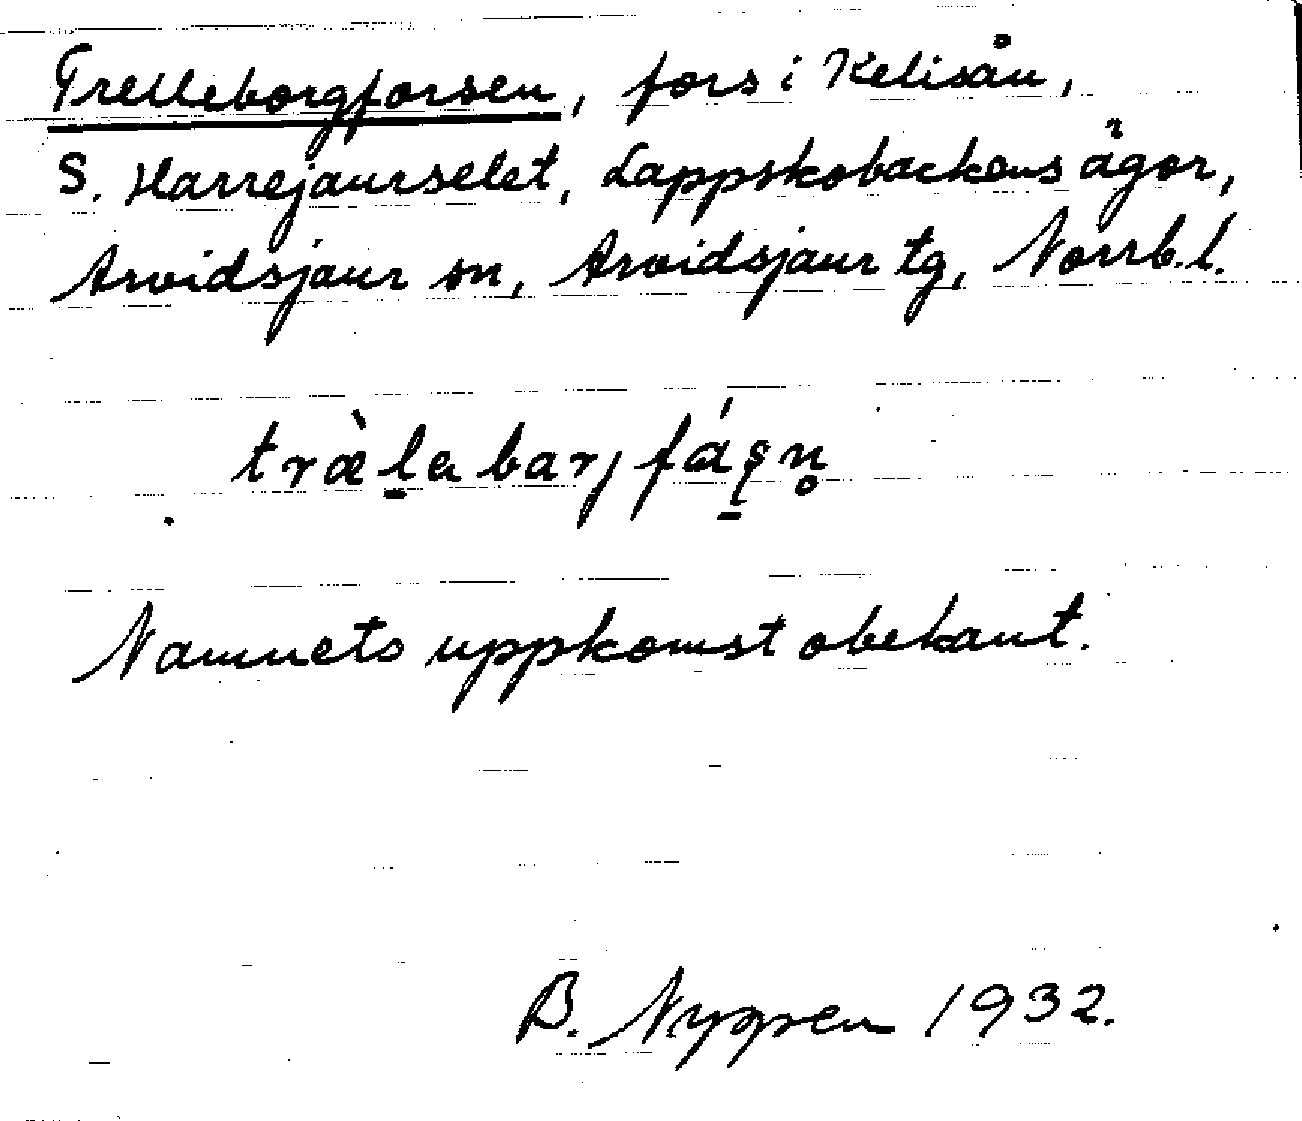 Trelleborgforsen, fors i Kelisån,
S. Harrejaurselet, Lappskobackens ägor,
Arvidsjaur sn, Arvidsjaur tg, Norrb. l.
træ̀l̠a barj fáʂ̠n̥
Namnets uppkomst obekant.
B. Nygren 1932.